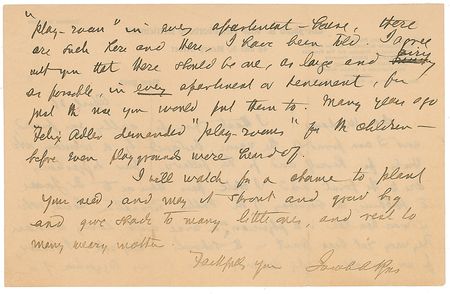 "play-room" in every apartment-house, there
are such here and there, I have been told. I agree
with you that there should be one, as large and airy
as possible, in every apartment or tenement, for
just the use you would put them to. Many years ago
Felix Adler demanded "play-rooms" for the children—
before even playgrounds were heard of.
I will watch for a chance to plant
your seed, and may it sprout and grow big
and give shade to many little ones, and rest to
many weary mother.
Faithfully yours Jacob A Riis